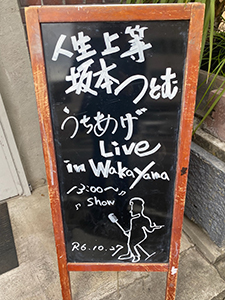 人生上等
坂本つとむ
うちあげ
Live
in Wakayama
13:00〜♪
♪ Show
R6.10.27